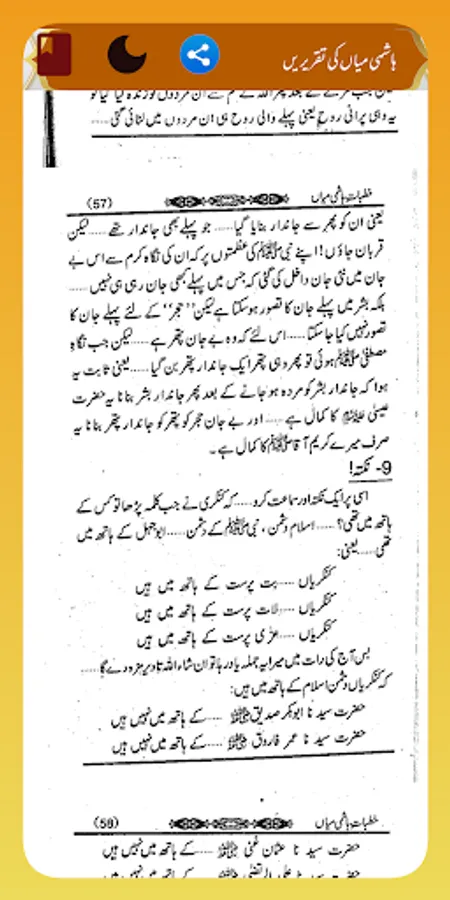 ہاشمی میاں کی تقریریں
یہ وہی پرانی روح یعنی پہلے والی روح ہی ان مردوں میں لٹائی گئی.....
خطبات ہاشمی میاں (57)
یعنی ان کو پھر سے جاندار بنایا گیا..... جو پہلے بھی جاندار تھے..... لیکن
قربان جاؤں! اپنے نبی ﷺ کی عظمتوں پر کہ ان کی نگاہ کرم سے اس بے
جان میں نئی جان داخل کی گئی کہ جس میں پہلے کبھی جان رہی ہی نہیں.....
بلکہ بشر میں پہلے جان کا تصور ہو سکتا ہے لیکن ”حجر“ کے لئے پہلے جان کا
تصور نہیں کیا جا سکتا..... اس لئے کہ وہ بے جان پتھر ہے..... لیکن جب نگاہِ
مصطفیٰ ﷺ ہوئی تو پھر وہی پتھر ایک جاندار پتھر بن گیا..... یعنی ثابت یہ
ہوا کہ جاندار بشر کو مردہ ہو جانے کے بعد پھر جاندار بشر بنانا یہ حضرت
عیسیٰ علیہ السلام کا کمال ہے..... اور بے جان حجر کو پتھر کو جاندار پتھر بنانا یہ
صرف میرے کریم آقا ﷺ کا کمال ہے۔
9- نکتہ!
اسی پر ایک نکتہ اور سماعت کرو..... کہ کنکری نے جب کلمہ پڑھا تو کس کے
ہاتھ میں تھی؟..... اسلام دشمن، نبی ﷺ کے دشمن..... ابوجہل کے ہاتھ میں
تھی..... یعنی:
کنکریاں..... بت پرست کے ہاتھ میں ہیں
کنکریاں..... لات پرست کے ہاتھ میں ہیں
کنکریاں..... عزیٰ پرست کے ہاتھ میں ہیں
بس آج کی رات میں میرا یہ جملہ یاد رہا تو ان شاء اللہ تا دیر مزہ دے گا.....
کہ کنکریاں دشمن اسلام کے ہاتھ میں ہیں:
حضرت سیدنا ابوبکر صدیق ؓ..... کے ہاتھ میں نہیں ہیں
حضرت سیدنا عمر فاروق ؓ..... کے ہاتھ میں نہیں ہیں
خطبات ہاشمی میاں (58)
حضرت سیدنا عثمان غنی ؓ..... کے ہاتھ میں نہیں ہیں